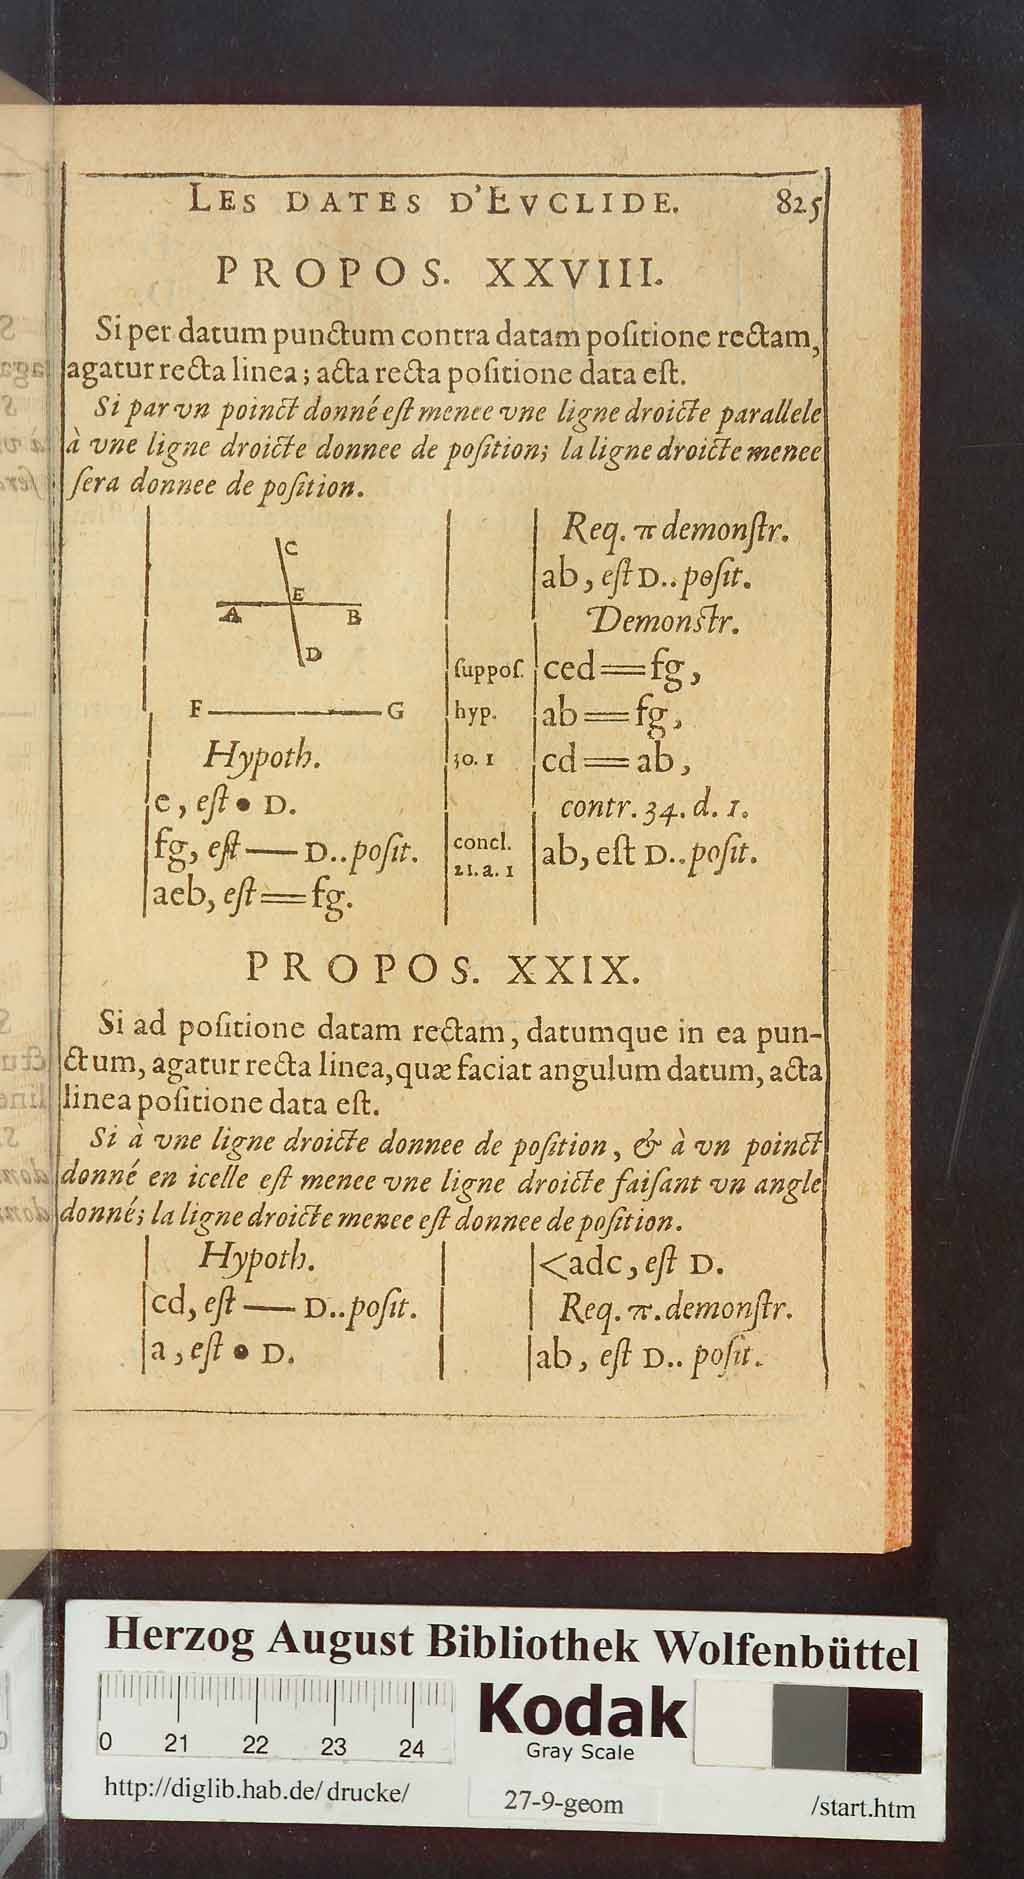 LES DATES D'EVCLIDE. 825
PROPOS. XXVIII.
Si per datum punctum contra datam poſitione rectam,
agatur recta linea; acta recta poſitione data eſt.
Si par vn poinct donné eſt menee vne ligne droicte parallele
à vne ligne droicte donnee de poſition; la ligne droicte menee
ſera donnee de poſition.
C
E
A B
D
F G
Hypoth.
e, eſt • D.
fg, eſt — D..poſit.
aeb, eſt == fg.
Req. π demonſtr.
ab, eſt D..poſit.
Demonſtr.
ſuppoſ. ced == fg,
hyp. ab == fg,
30. 1 cd == ab,
contr. 34. d. 1.
concl.
21. a. 1 ab, eſt D..poſit.
PROPOS. XXIX.
Si ad poſitione datam rectam, datumque in ea pun-
ctum, agatur recta linea, quæ faciat angulum datum, acta
linea poſitione data eſt.
Si à vne ligne droicte donnee de poſition, & à vn poinct
donné en icelle eſt menee vne ligne droicte faiſant vn angle
donné; la ligne droicte menee eſt donnee de poſition.
Hypoth.
cd, eſt — D..poſit.
a, eſt • D.
<adc, eſt D.
Req. π. demonſtr.
ab, eſt D.. poſit.
Herzog August Bibliothek Wolfenbüttel
0 21 22 23 24
Kodak
Gray Scale
http://diglib.hab.de/drucke/ 27-9-geom /start.htm